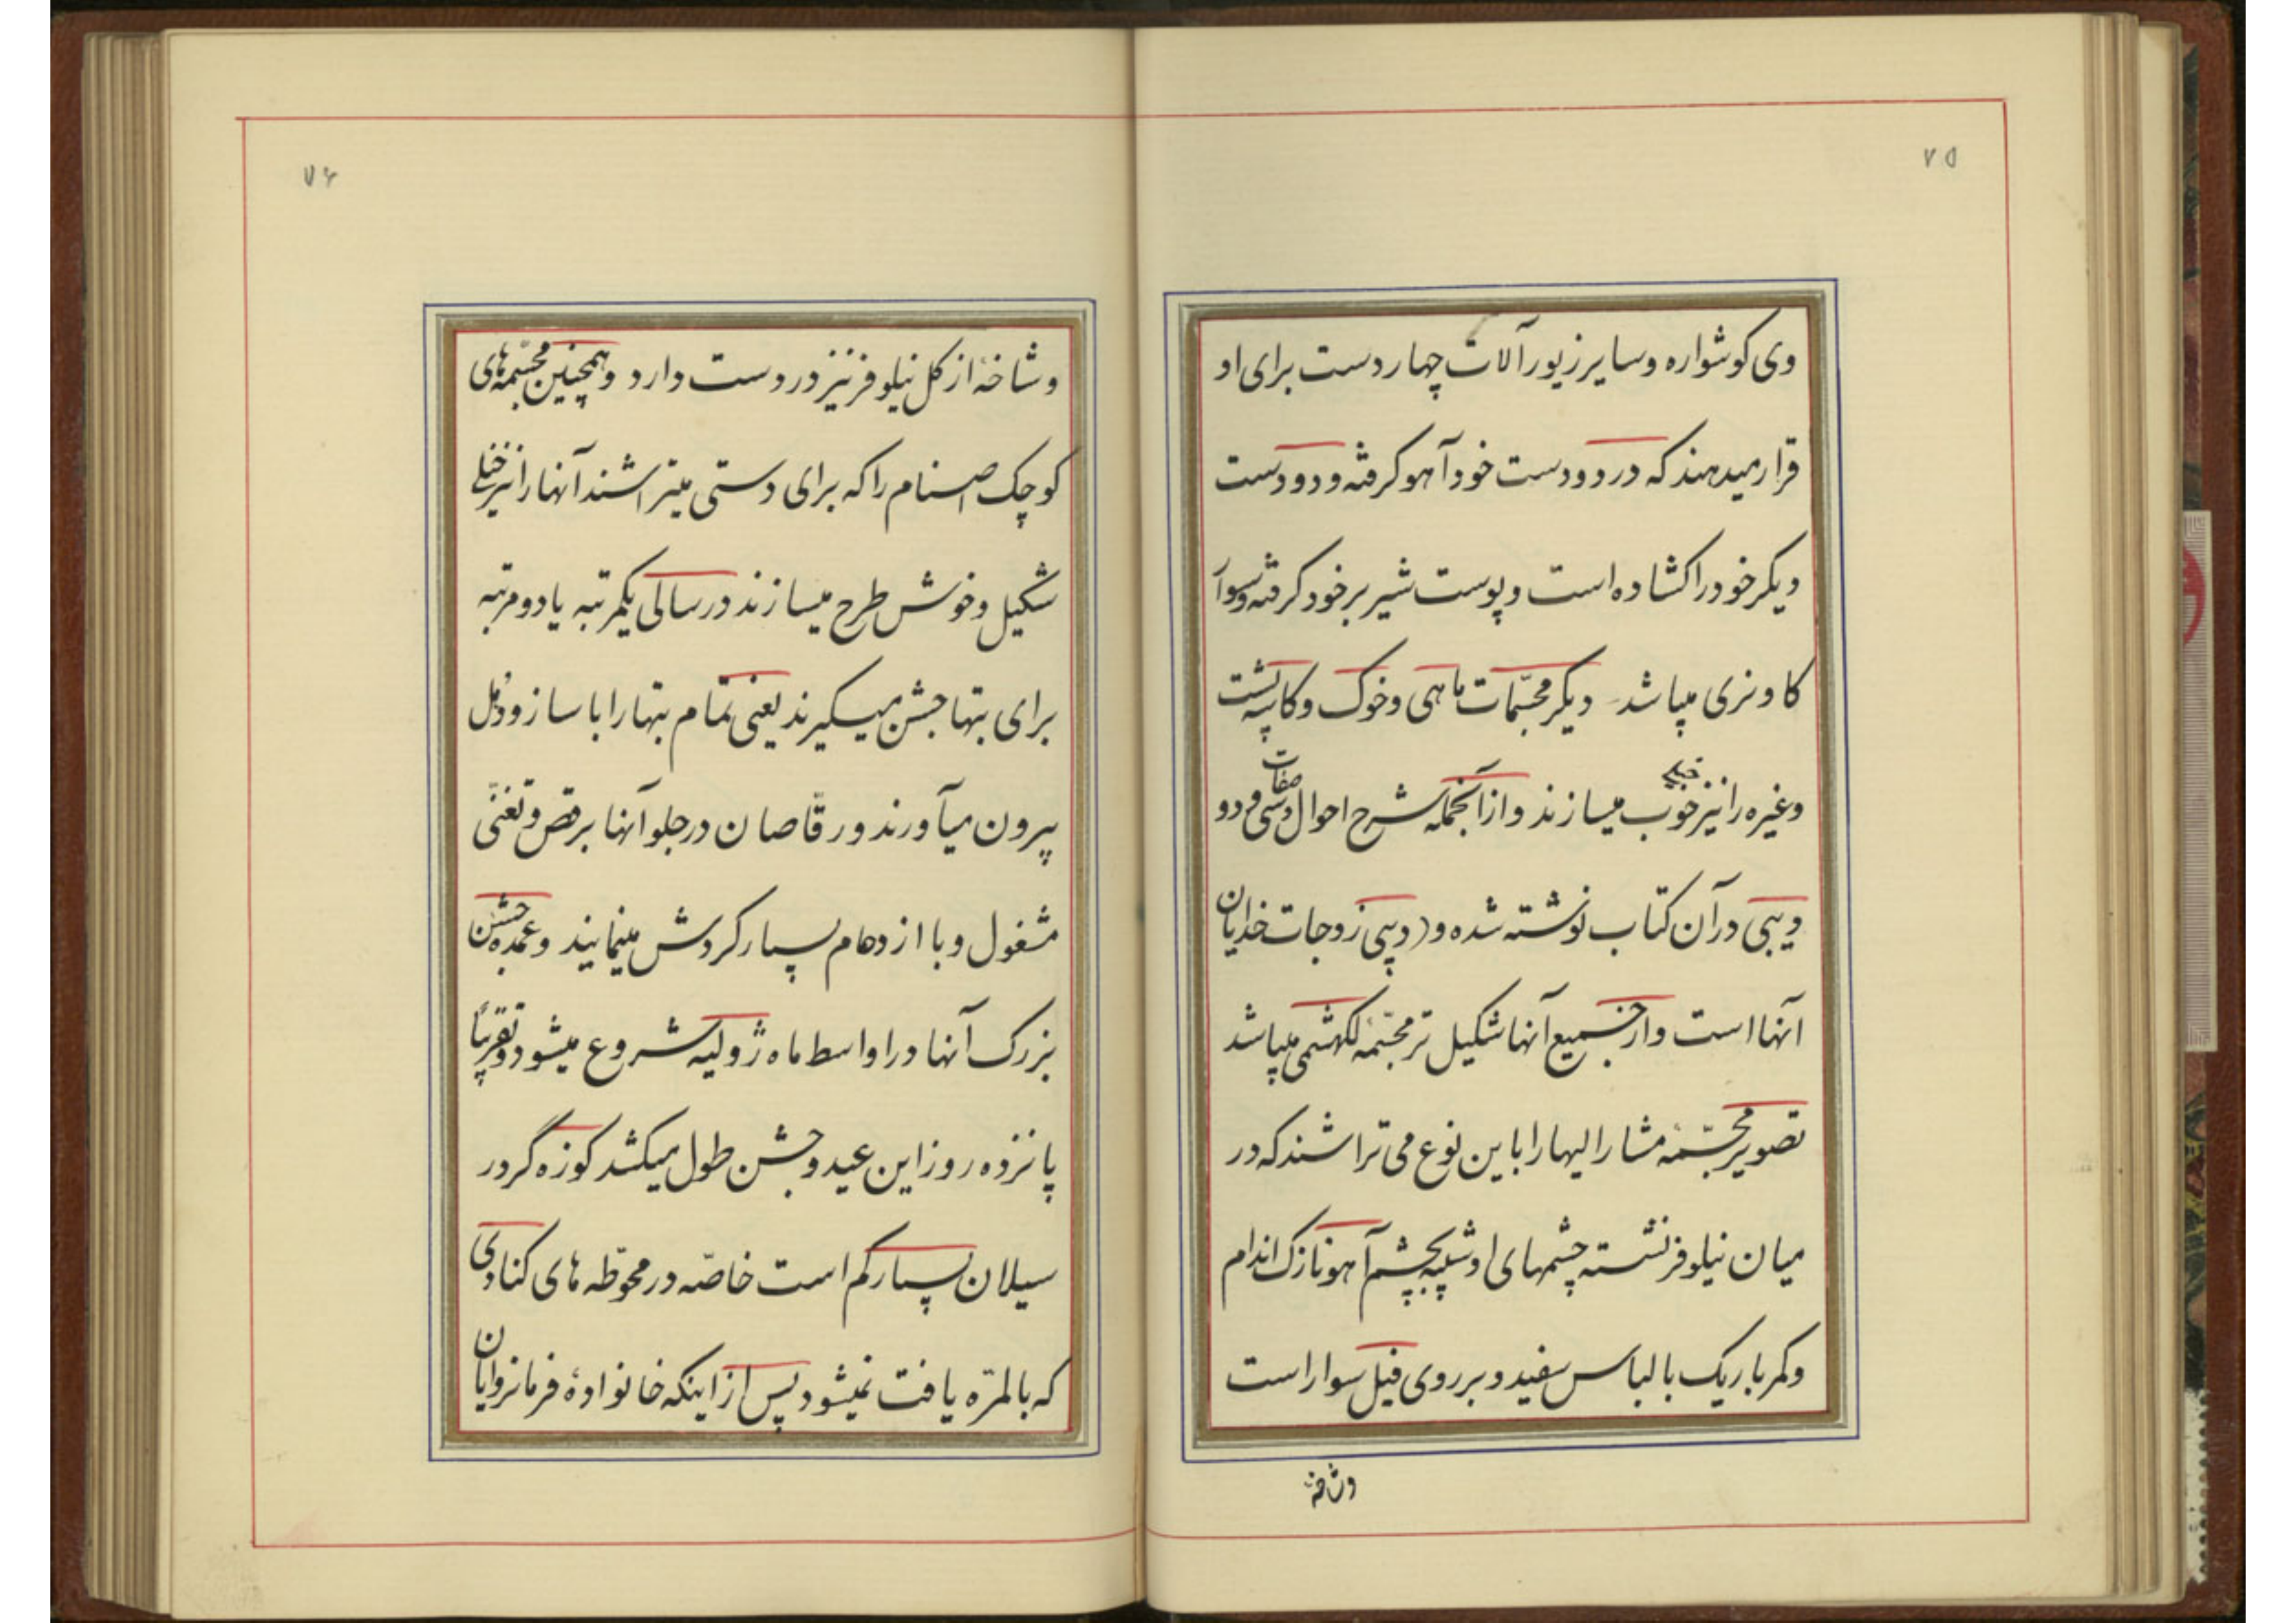 ۷۵
وی کوشواره وسایر زیورآلات چهار دست برای او
قرار میدهند که در دو دست خود آهو کرفته و دو دست
دیکر خود را کشاده است و پوست شیر بر خود کرفته و سوار
کاو نری میباشد دیکر مجسمات ماهی وخوک وکاسه پشت
وغیره را نیز خیلی خوب میسازند و از آنجمله شرح احوال و صفات سی و دو
دیبی در آن کتاب نوشته شده و (دیبی زوجات خدایان
آنها است و از جمیع آنها شکیل تر مجسّمهٔ لکهشمی میباشد
تصویر مجسّمهٔ مشار الیها را باین نوع می تراشند که در
میان نیلوفر نشسته چشمهای او شبیه بچشم آهو نازک اندام
وکمر باریک با لباس سفید و بر روی فیل سوار است
وشاخهٔ
۷۶
وشاخهٔ از کل نیلوفر نیز در دست دارد وهمچنین مجسّمه های
کوچک اصنام را که برای دستی میتراشند آنها را نیز خیلی
شکیل وخوش طرح میسازند در سالی یکمرتبه یا دو مرتبه
برای بتها جشن میکیرند یعنی تمام بتها را با ساز و دُهل
بیرون میآورند و رقّاصان در جلو آنها برقص و تغنّی
مشغول و با ازدحام بسیار کردش مینمایند وعمده جشن
بزرک آنها در اواسط ماه ژولیه شروع میشود و تقریباً
پانزده روز این عید و جشن طول میکشد کوزه گر در
سیلان بسیار کم است خاصّه در محوّطه های کنادی
که بالمرّه یافت نمیشود پس از اینکه خانوادهٔ فرمانروایان